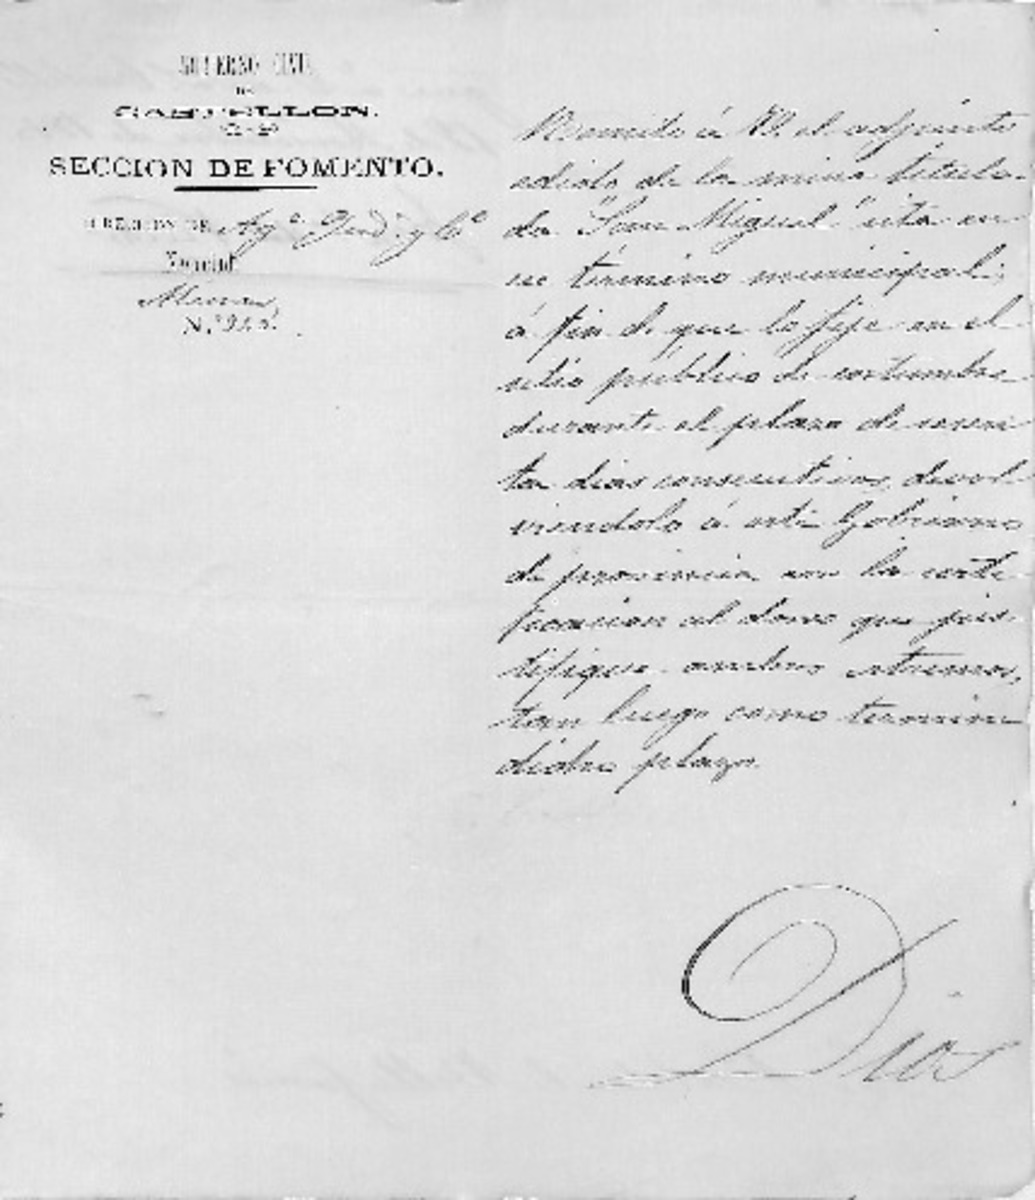 GOBIERNO CIVIL
DE
CASTELLON.
SECCION DE FOMENTO.
DIRECCION DE Agª. Indª. y Cº
Negociado
Minas
N.º 925.
Remito á V. el adjunto
edicto de la mina titula-
da "San Miguel" sita en
su término municipal;
á fin de que lo fije en el
sitio público de costumbre
durante el plazo de sesen-
ta dias consecutivos, devol-
viendolo á este Gobierno
de provincia con la certi-
ficacion al dorso que jus-
tifique ambos estremos,
tan luego como termine
dicho plazo.
Dios